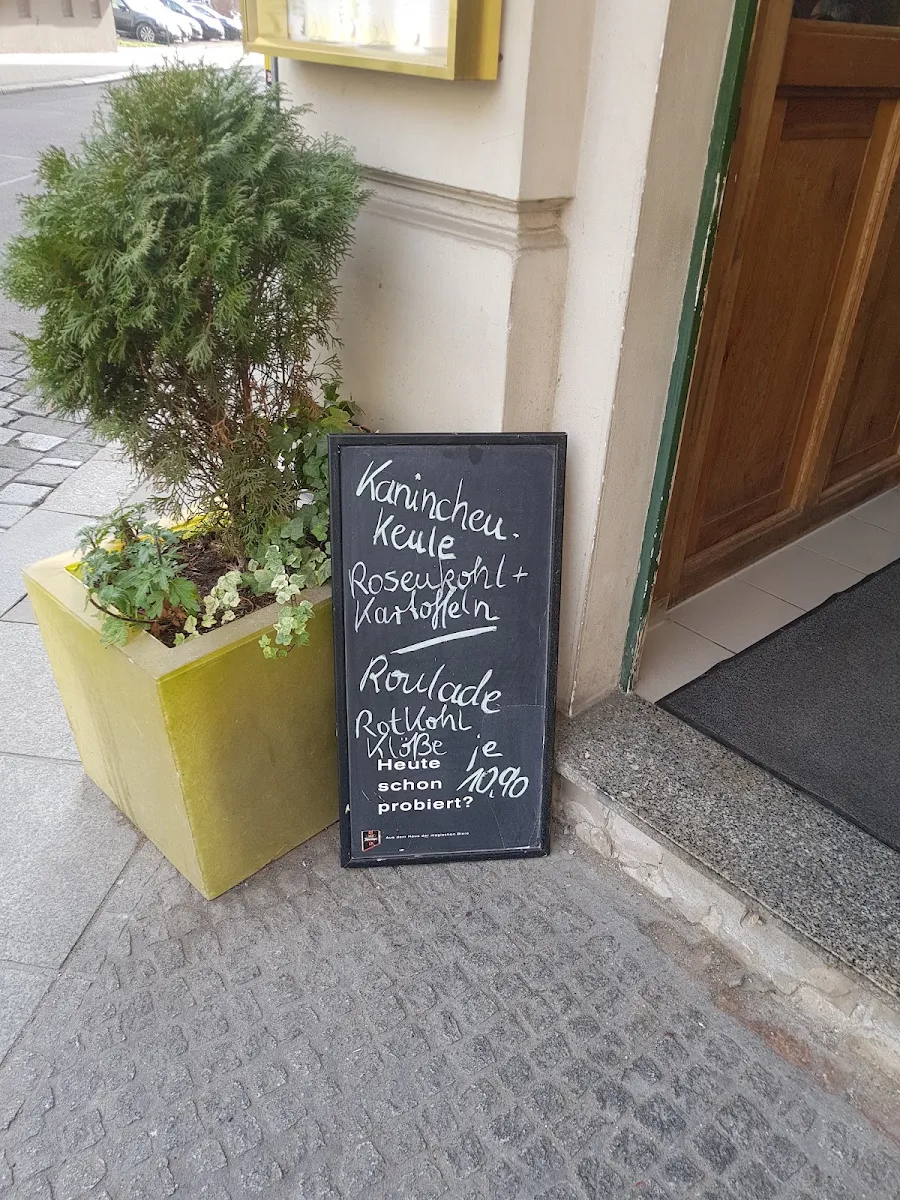 Kaninchen-
Keule
Rosenkohl +
Kartoffeln
Roulade
Rotkohl
Klöße
je
10,90
Heute
schon
probiert?
Aus dem Haus der magischen Biere